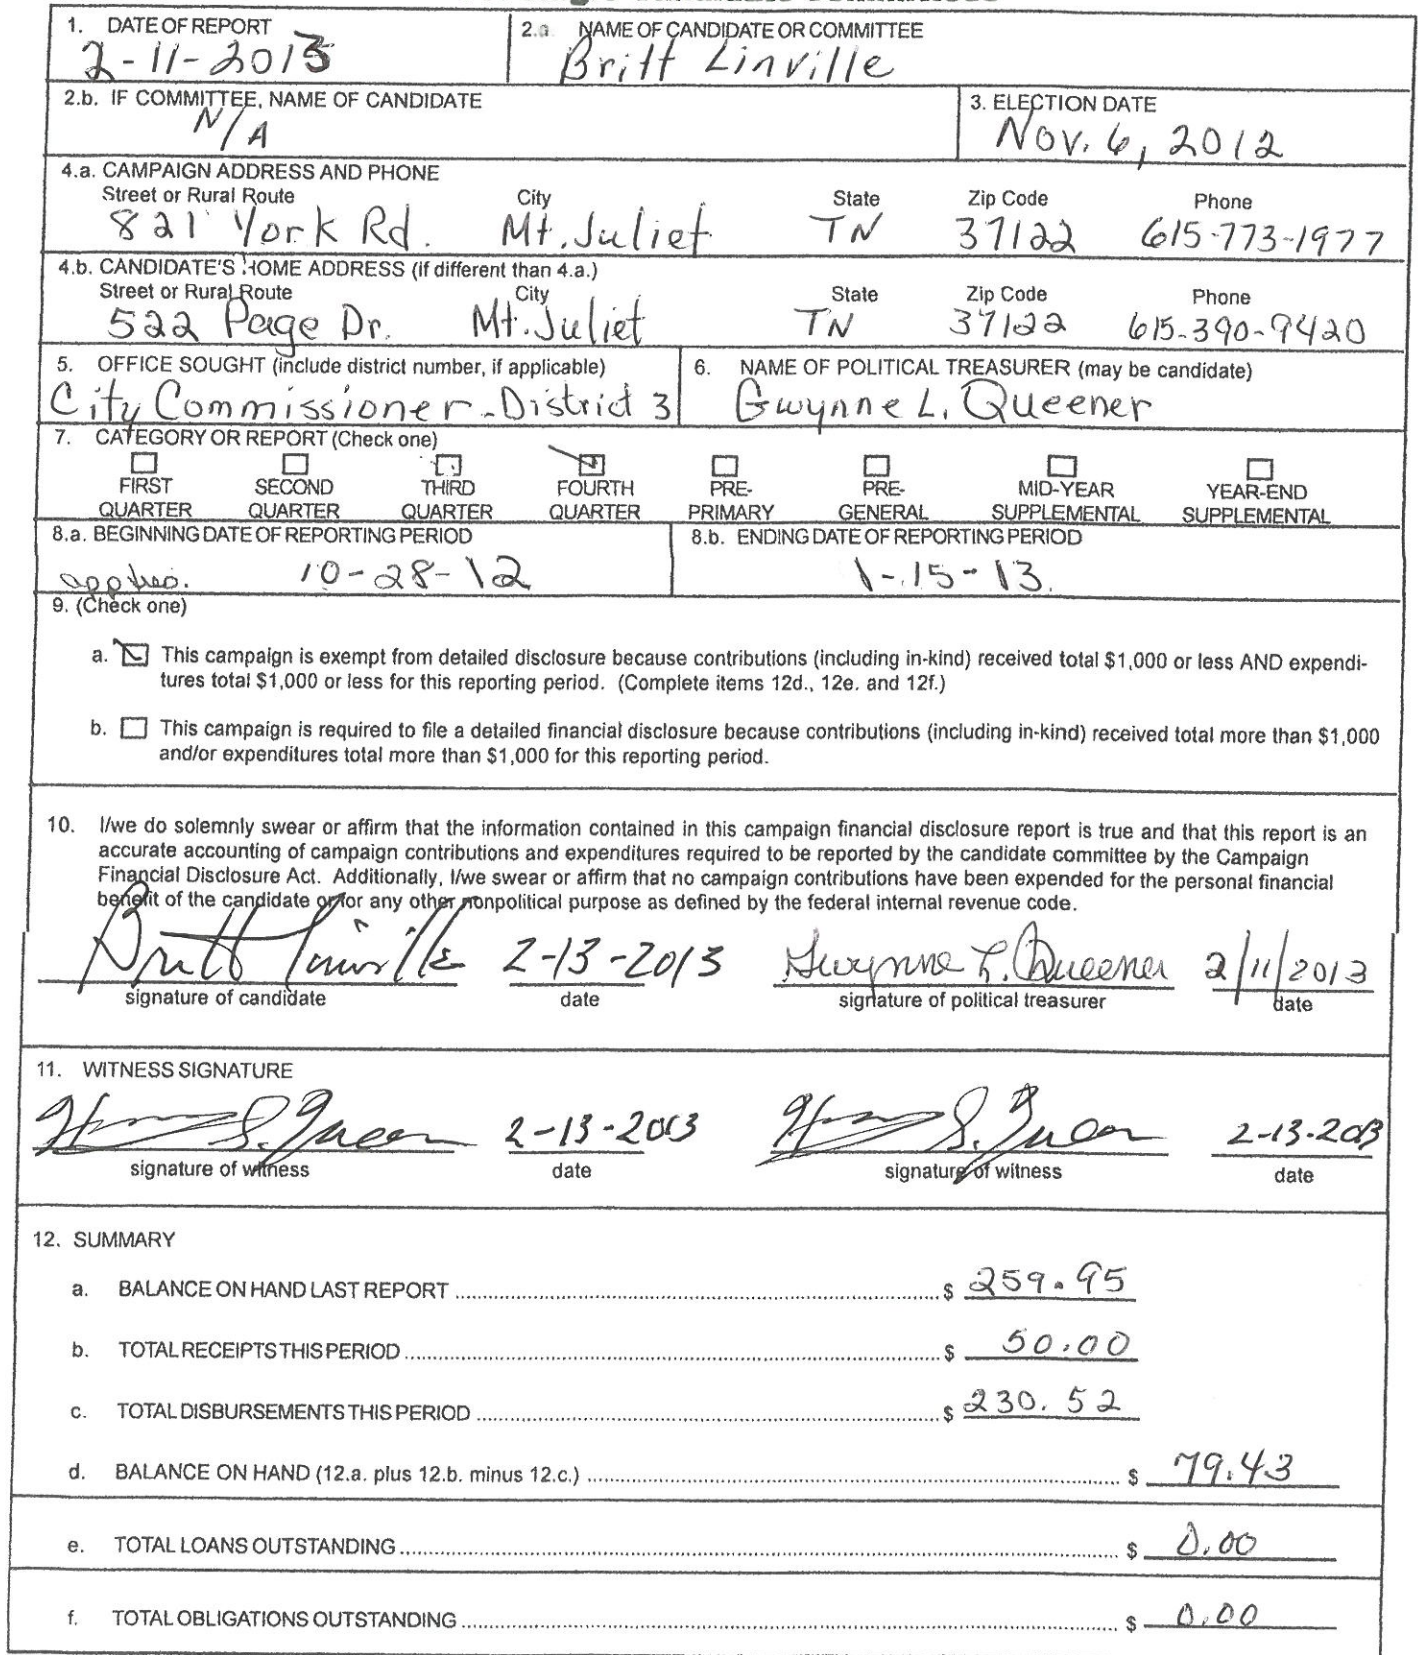 1. DATE OF REPORT
2-11-2013
2.a. NAME OF CANDIDATE OR COMMITTEE
Britt Linville
2.b. IF COMMITTEE, NAME OF CANDIDATE
N/A
3. ELECTION DATE
Nov. 6, 2012
4.a. CAMPAIGN ADDRESS AND PHONE
Street or Rural Route City State Zip Code Phone
821 York Rd. Mt. Juliet TN 37122 615-773-1977
4.b. CANDIDATE'S HOME ADDRESS (if different than 4.a.)
Street or Rural Route City State Zip Code Phone
522 Page Dr. Mt. Juliet TN 37122 615-390-9420
5. OFFICE SOUGHT (include district number, if applicable)
City Commissioner - District 3
6. NAME OF POLITICAL TREASURER (may be candidate)
Gwynne L. Queener
7. CATEGORY OR REPORT (Check one)
FIRST QUARTER
SECOND QUARTER
THIRD QUARTER
FOURTH QUARTER
PRE-PRIMARY
PRE-GENERAL
MID-YEAR SUPPLEMENTAL
YEAR-END SUPPLEMENTAL
8.a. BEGINNING DATE OF REPORTING PERIOD
10-28-12
8.b. ENDING DATE OF REPORTING PERIOD
1-15-13
9. (Check one)
a. This campaign is exempt from detailed disclosure because contributions (including in-kind) received total $1,000 or less AND expendi-
tures total $1,000 or less for this reporting period. (Complete items 12d., 12e. and 12f.)
b. This campaign is required to file a detailed financial disclosure because contributions (including in-kind) received total more than $1,000
and/or expenditures total more than $1,000 for this reporting period.
10. I/we do solemnly swear or affirm that the information contained in this campaign financial disclosure report is true and that this report is an
accurate accounting of campaign contributions and expenditures required to be reported by the candidate committee by the Campaign
Financial Disclosure Act. Additionally, I/we swear or affirm that no campaign contributions have been expended for the personal financial
benefit of the candidate or for any other nonpolitical purpose as defined by the federal internal revenue code.
Britt Linville 2-13-2013 Gwynne L. Queener 2/11/2013
signature of candidate date signature of political treasurer date
11. WITNESS SIGNATURE
2-13-2013 2-13-2013
signature of witness date signature of witness date
12. SUMMARY
a. BALANCE ON HAND LAST REPORT $ 259.95
b. TOTAL RECEIPTS THIS PERIOD $ 50.00
c. TOTAL DISBURSEMENTS THIS PERIOD $ 230.52
d. BALANCE ON HAND (12.a. plus 12.b. minus 12.c.) $ 79.43
e. TOTAL LOANS OUTSTANDING $ 0.00
f. TOTAL OBLIGATIONS OUTSTANDING $ 0.00